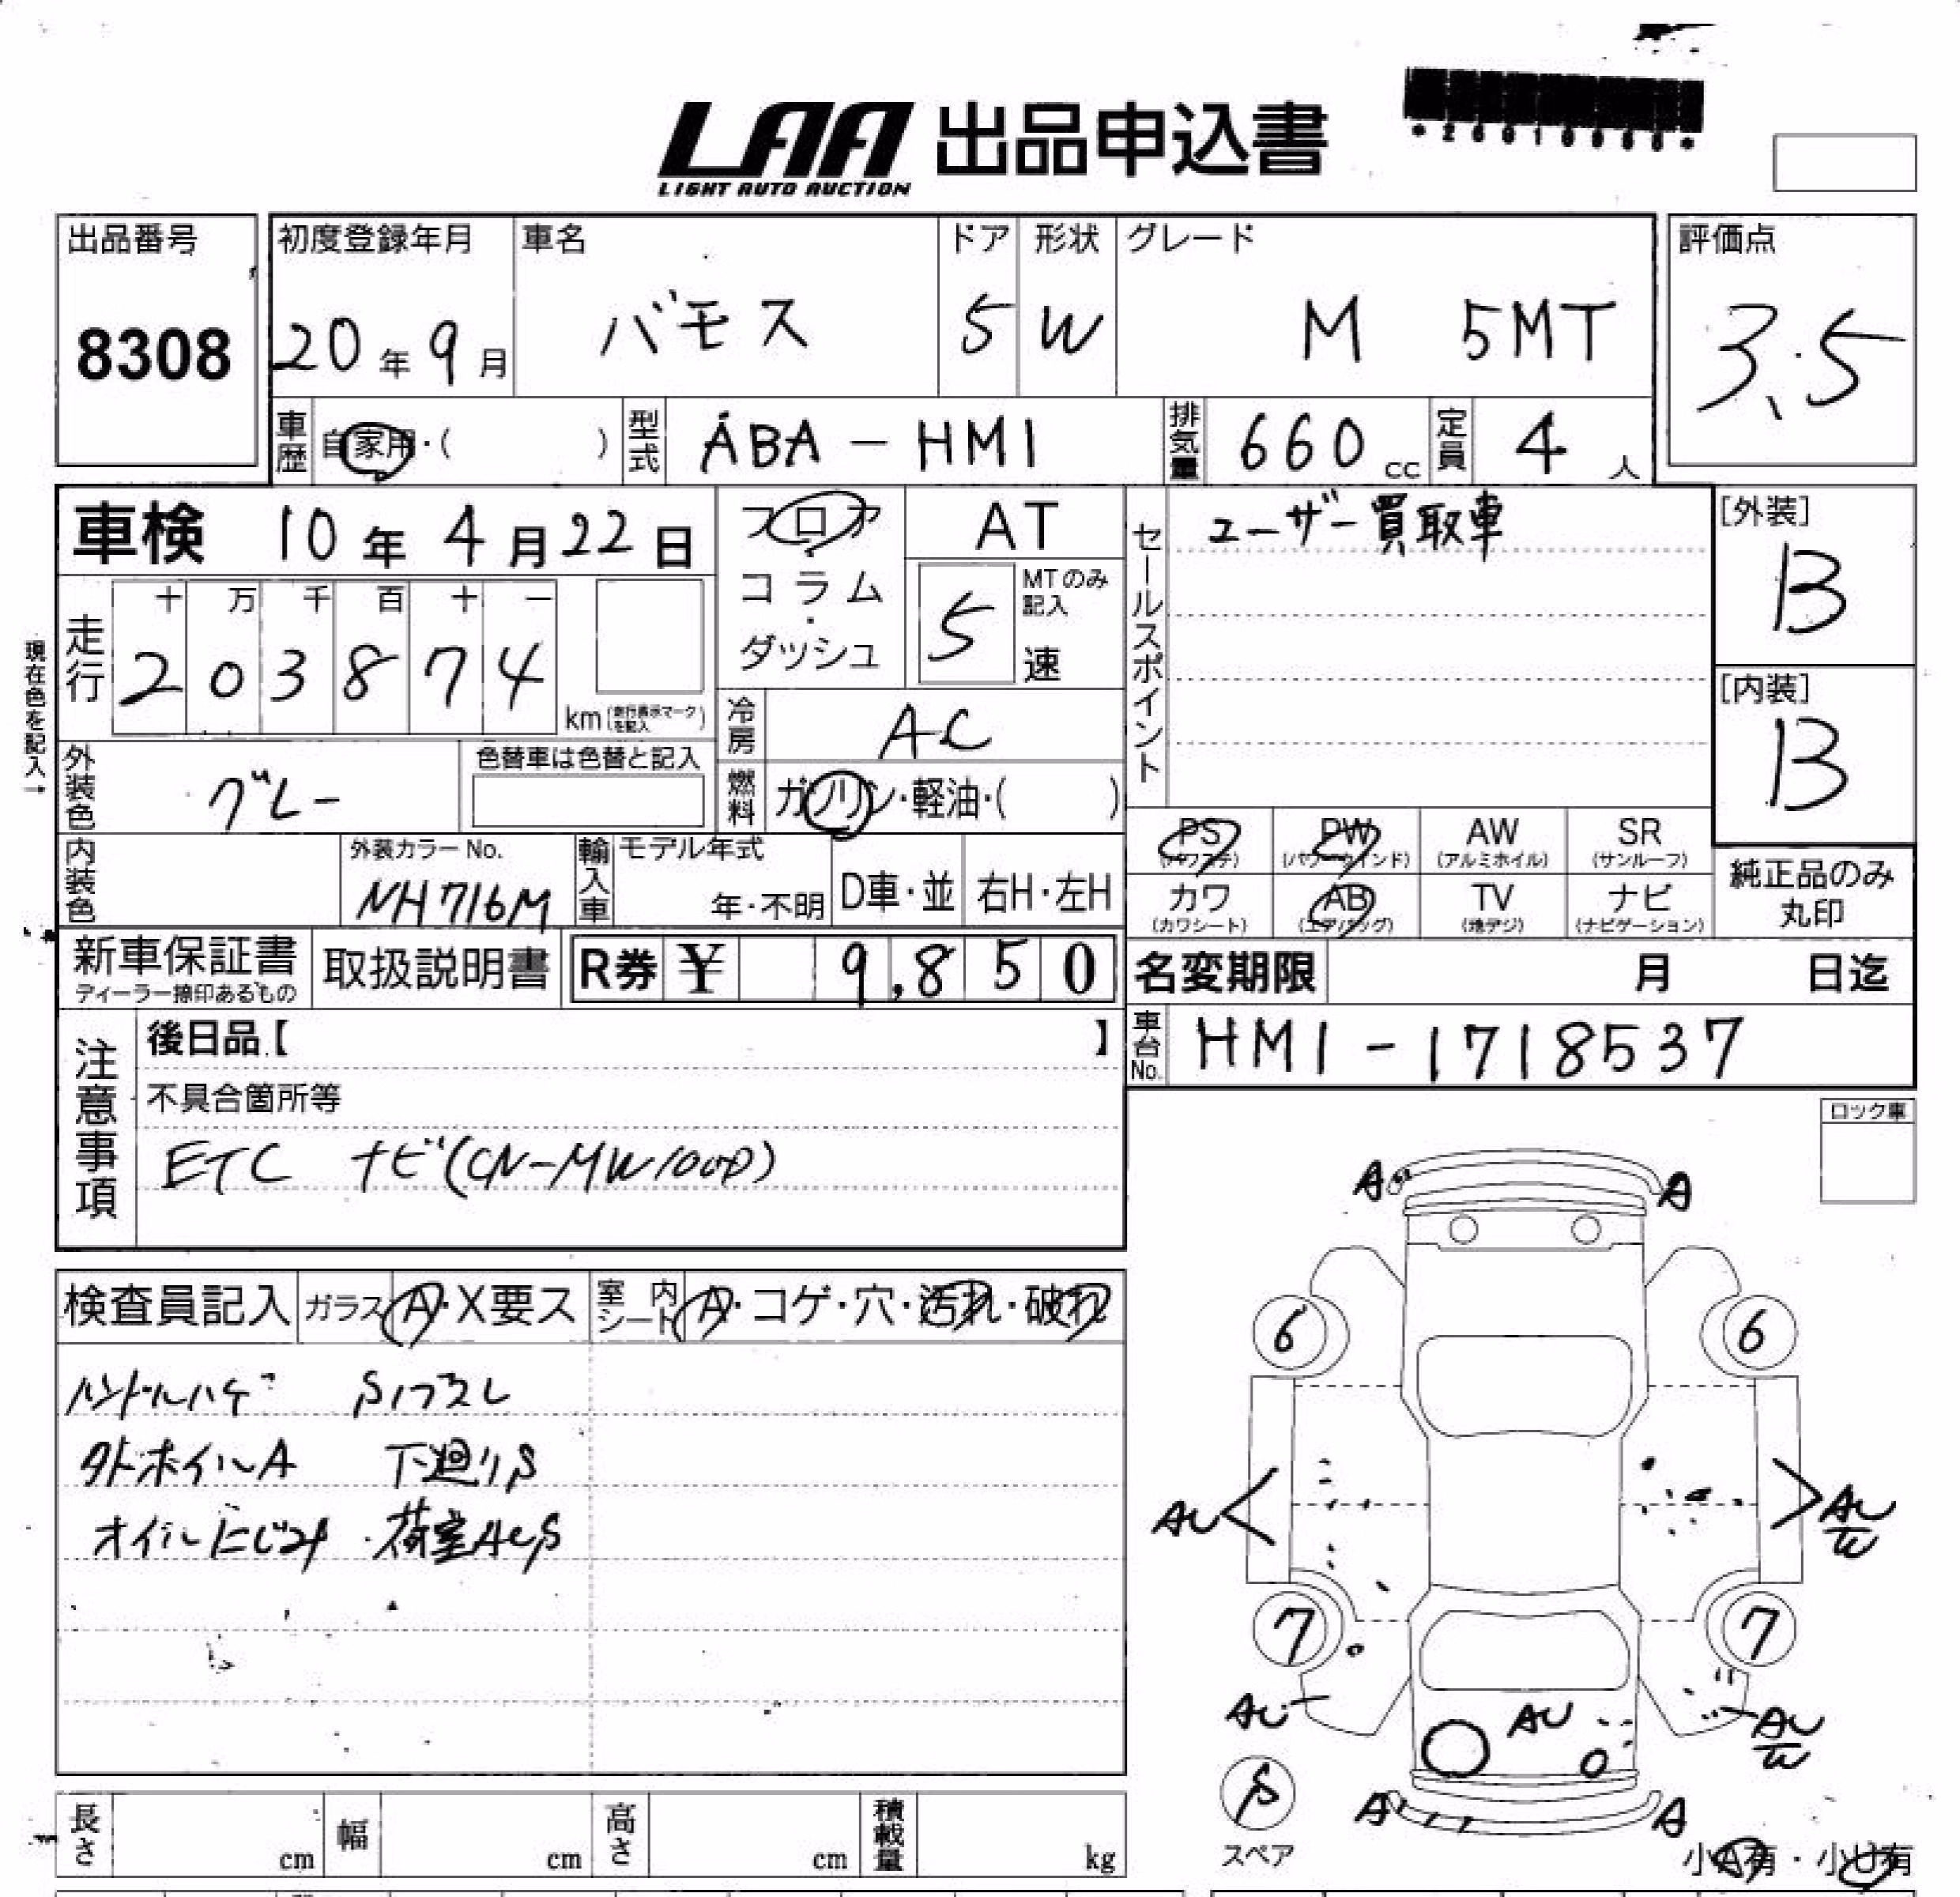 LAA 出品申込書
LIGHT AUTO AUCTION
出品番号
8308
初度登録年月
20年9月
車名
バモス
ドア
5
形状
W
グレード
M 5MT
評価点
3.5
車歴
自家用・( )
型式
ABA-HM1
排気量
660cc
定員
4人
車検 10年4月22日
フロア
コラム・
ダッシュ
AT
5
MTのみ
記入
速
セールスポイント
ユーザー買取車
[外装]
B
[内装]
B
現在色を記入→
走行
十 万 千 百 十 一
2 0 3 8 7 4
km(走行表示マークを記入)
冷房
AC
外装色
グレー
色替車は色替と記入
燃料
ガソリン・軽油・( )
内装色
外装カラーNo.
NH716M
輸入車
モデル年式
年・不明
D車・並
右H・左H
PS
(パワステ)
PW
(パワーウインド)
AW
(アルミホイル)
SR
(サンルーフ)
カワ
(カワシート)
AB
(エアバッグ)
TV
(地デジ)
ナビ
(ナビゲーション)
純正品のみ
丸印
新車保証書
ディーラー捺印あるもの
取扱説明書
R券 ¥ 9,850
名変期限 月 日迄
注意事項
後日品【 】
車台No.
HM1-1718537
不具合箇所等
ETC ナビ(CN-MW100D)
ロック車
A A
検査員記入
ガラス A・X要ス
室内シート A・コゲ・穴・汚れ・破れ
6 6
ハンドルハゲ
外ホイルA 下廻りS
オイルにじみ・荷室AUS
AU AU W
7 7
AU AU AU W
S
スペア
A A
小A有・小U有
長さ cm
幅 cm
高さ cm
積載量 kg